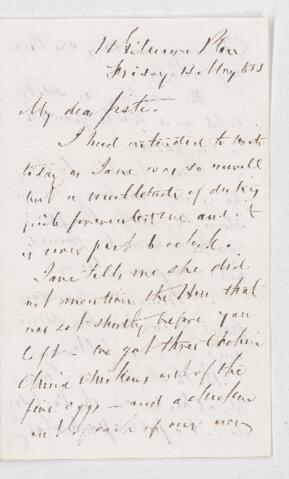 Gilmore Place
Friday 13 May 1853
My dear Sister
I had intended to write
today as Jane was so unwell
but a multitude of
prevented me and it
is now past 6 oclock.
Jane tells me she did
not mention the Hen that
was set shortly before you
left – we got three Cochin
China chickens out of the
five eggs – and a chicken
out of each of our own